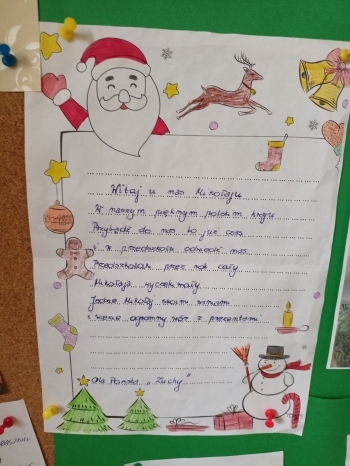 Witaj u nas Mikołaju
W naszym pięknym polskim kraju
Przybądź do nas bo już czas
i w przedszkolu odwiedź nas
Przedszkolaki przez rok cały
Mikołaja wyczekiwały
Jedne Mikołaj
i worek ogromny z prezentami
"Zuchy"